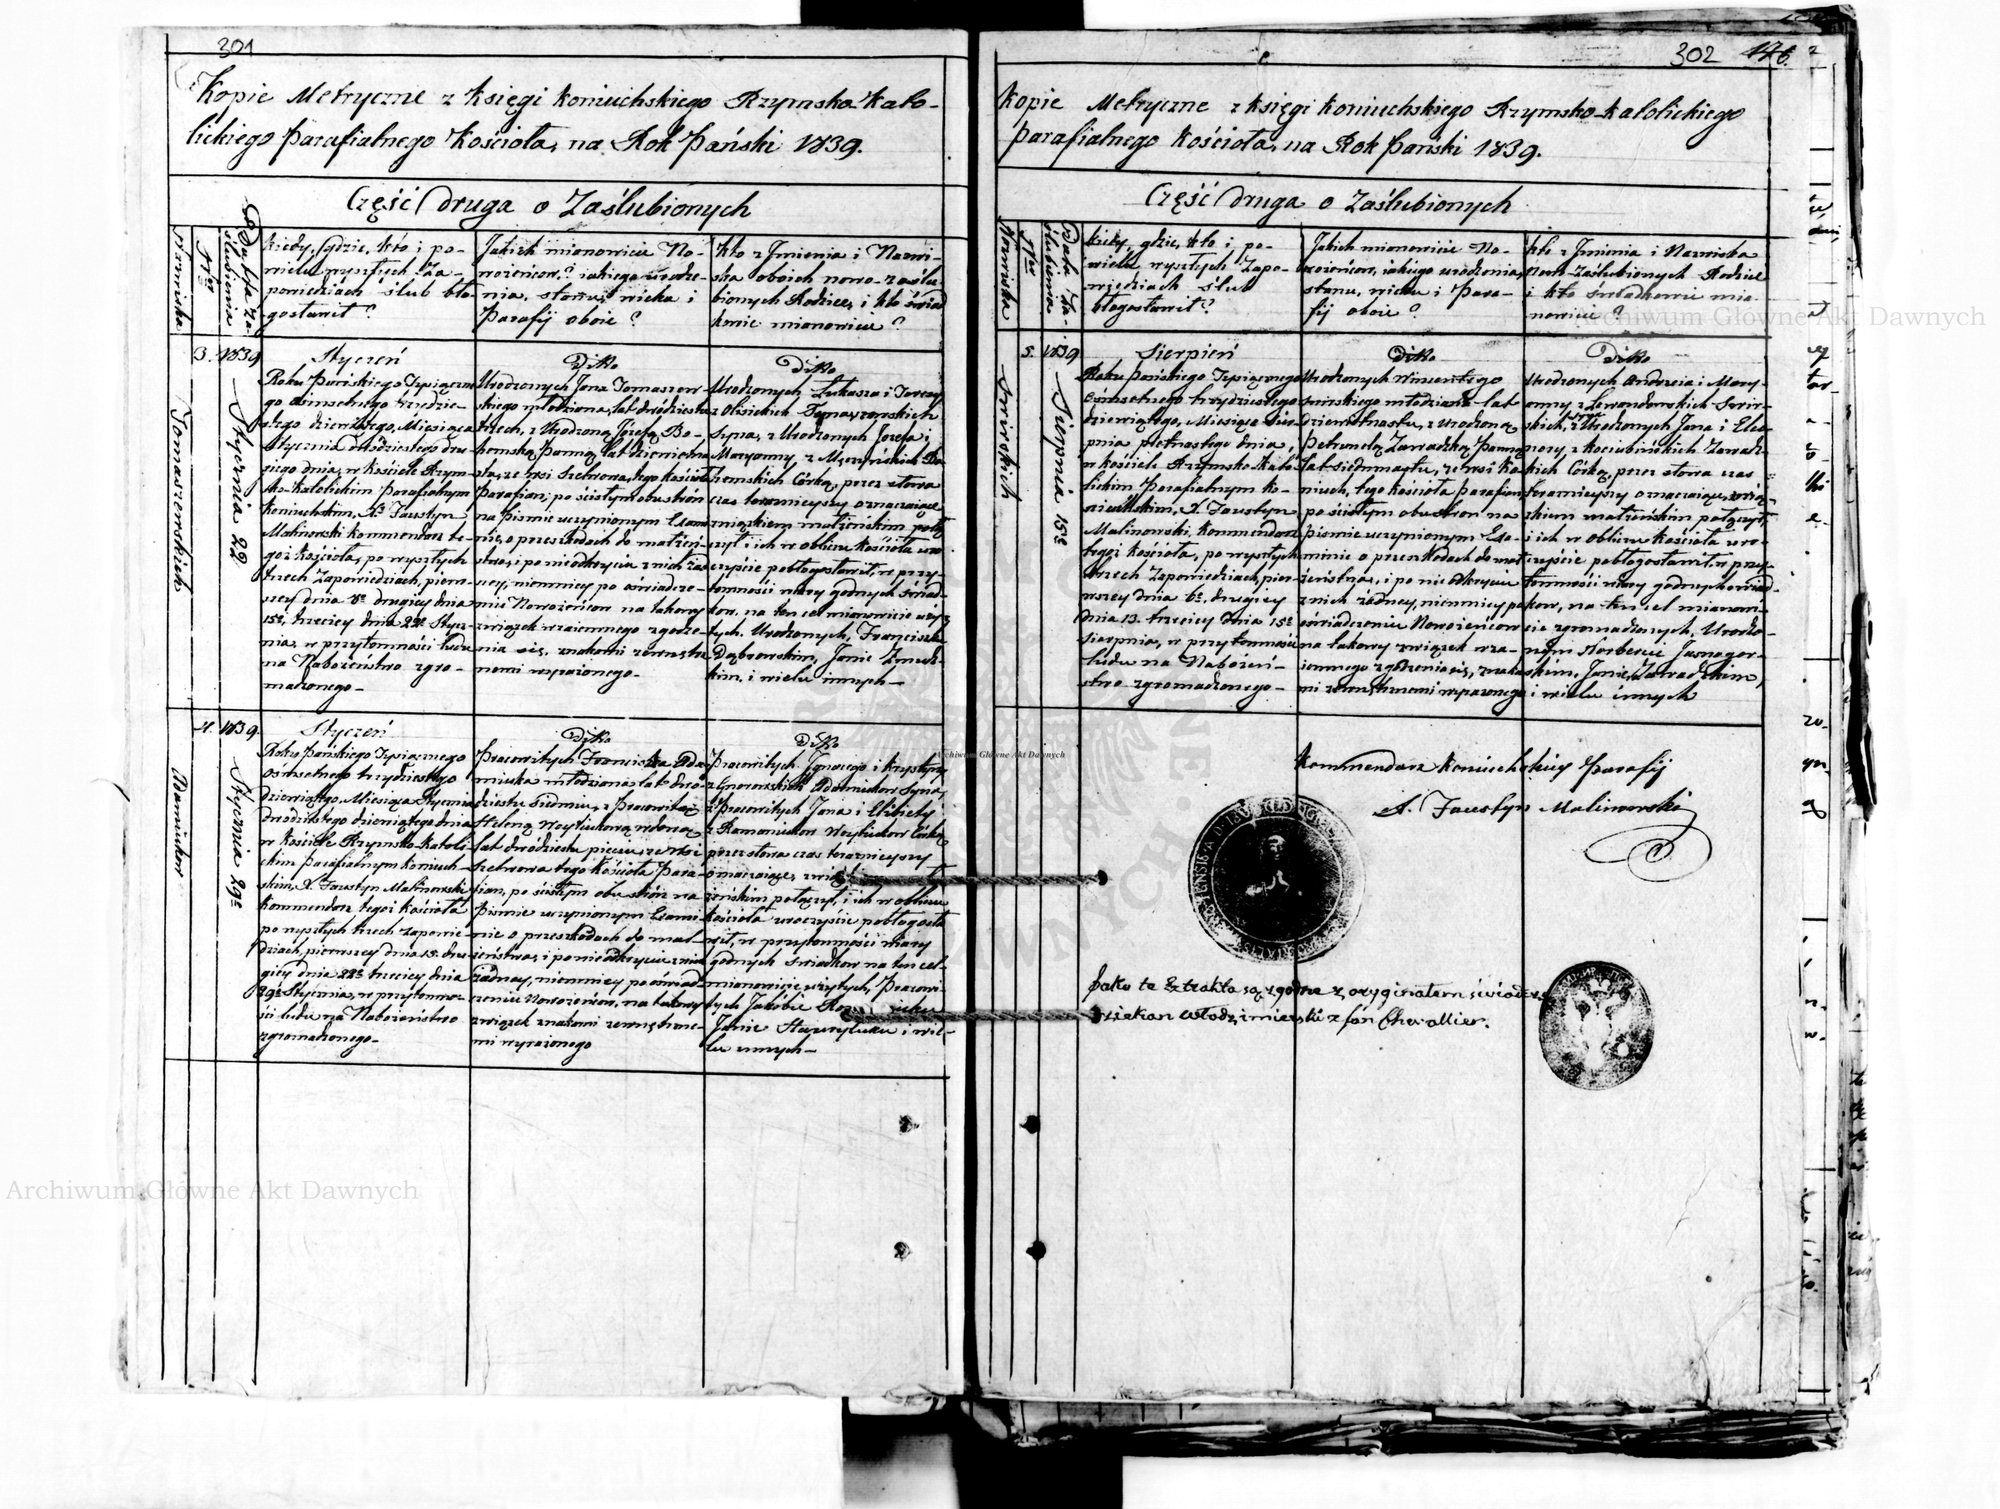 301
Kopie Metryczne z Księgi Koniuchskiego Rzymsko-Kato-
lickiego Parafialnego Kościoła, na Rok Pański 1839.
Część druga o Zaślubionych
Nazwiska
Nro
Data za-
ślubienia
Kiedy, gdzie, kto i po
wielu wyszłych Za-
powiedziach ślub bło-
gosławił?
Jakich mianowicie No-
wożeńcow? jakiego urodze-
nia, stanu, wieku i
Parafij oboie?
Kto z Imienia i Nazwi-
ska oboich nowo-zaślu-
bionych Rodzice, i kto świad-
kowie mianowicie?
3.
1839
Stycznia 22
Tomaszewskich
Styczeń
Roku Pańskiego Tysiączne-
go Ośmsetnego trzydzie-
stego dziewiątego, Miesiąca
Stycznia dwudziestego dru-
giego dnia, w Kościele Rzym-
sko-Katolickim Parafialnym
Koniuchskim, X. Faustyn
Malinowski Kommendarz te-
goż Kościoła, po wyszłych
trzech Zapowiedziach, pierw-
szey dnia drugiey dnia
15º, trzeciey dnia 22º Stycz-
nia, w przytomności ludu
na Nabożeństwo zgro-
madzonego-
Ditto
Urodzonych Jana Tomaszew-
skiego młodziana, lat dwódziestu
trzech, z Urodzoną Józefą Bo-
Panną, lat dziewietna-
ze wsi tego Kościoła
Parafian; po ścisłym obu stron
na Piśmie uczynionym Exami-
nie, o przeszkodach do małżeń-
stwa, i po nieodkryciu z nich żad-
ney, niemniey po oświadcze-
niu Nowożeńcow na takowy
związek wzaiemnego zgodze-
nia się, znakami zewnętrz-
nemi wyrażonego-
Ditto
Urodzonych Łukasza i Teressy
z Olisickich Tomaszewskich
Syna, z Urodzonych Józefa i
Maryanny, z
Córką, przez słowa
czas teraznieyszy oznaczaiące
związkiem małżeńskim połą-
czył i ich w obliczu Kościoła uro-
czyście pobłogosławił, w przy-
tomności wiary godnych świad-
kow, na ten cel mianowicie użys-
tych, Urodzonych, Franciszku
Dąbrowskim, Janie
i wielu innych-
4.
1839.
Stycznia 29º
Adamiukow
Styczeń
Roku Pańskiego Tysiącznego
Ośmsetnego trzydziestego
dziewiątego, Miesiąca Stycznia
dwódziestego dziewiątego dnia
w Kościele Rzymsko-Katolic-
kim Parafialnym Koniuch-
skim, X. Faustyn Malinowski
Kommendarz tegoż Kościoła
po wyszłych trzech Zapowie-
dziach, pierwszey dnia 15. dru-
giey dnia 22º trzeciey dnia
29º Stycznia, w przytomno-
ści ludu na Nabożeństwo
zgromadzonego-
Ditto
Pracowitych Franciszka Ada-
miuka młodziana, lat dwó-
dziestu siedmiu, z Pracowitą
Heleną wdową
lat dwódziestu pięciu, ze wsi
tego Kościoła Para-
fian, po ścisłym obu stron na
Piśmie uczynionym Exami-
nie o przeszkodach do mał-
żeństwa, i po nieodkryciu z nich
żadney, niemniey po oświad-
czeniu Nowożeńcow, na takowy
związek znakami zewnętrzne-
mi wyrażonego
Ditto
Pracowitych, Ignacego i Krystyny
Adamiukow Syna,
z Pracowitych Jana i Elżbiety
z Romaniukow Córką
przez słowa czas teraznieyszy
oznaczaiące,
żeńskim połączył, i ich w obliczu
Kościoła uroczyście pobłogosła-
wił, w przytomności wiary
godnych świadkow na ten cel
mianowicie użytych, Pracowi-
tych Jakóbie
Janie i wie-
lu innych-
302
Kopie Metryczne z Księgi Koniuchskiego Rzymsko-Katolickiego
Parafialnego Kościoła, na Rok Pański 1839.
Część druga o Zaślubionych
Nazwiska
Nro
Data za-
ślubienia
Kiedy, gdzie, kto i po-
wielu wyszłych Zapo-
wiedziach ślub
błogosławił?
Jakich mianowicie No-
wożeńcow, jakiego urodzenia,
stanu, wieku i Para-
fij oboie?
Kto z Imienia i Nazwiska
Nowo-Zaślubionych Rodzice
i kto świadkowie mia-
nowicie?
5.
1839
Sierpnia 15º
Świrskich
Sierpień
Roku Pańskiego Tysiącznego
Ośmsetnego trzydziestego
dziewiątego, Miesiąca Sier-
pnia pietnastego dnia,
w Kościele Rzymsko-Kato-
lickim Parafialnym Ko-
niuchskim, X. Faustyn
Malinowski, Kommendarz
tegoż Kościoła, po wyszłych
trzech Zapowiedziach, pier-
wszey dnia 6º, drugiey
dnia 13. trzeciey dnia 15º
Sierpnia, w przytomności
ludu na Nabożeń-
stwo zgromadzonego-
Ditto
Urodzonych Wincentego
Świrskiego młodziana lat
dziewietnastu, z Urodzoną
Petronelą Zawadzką Panną
lat siedmnastu, ze wsi Ko-
niuch, tego Kościoła Parafian,
po ścisłym obu stron na
piśmie uczynionym Exa-
minie o przeszkodach do mał-
żeństwa, i po nie odkryciu
z nich żadney, niemniey po
oświadczeniu Nowożeńcow
na takowy związek wza-
iemnego zgodzenia się, znaka-
mi zewnętrznemi wyrażonego
Ditto
Urodzonych Andrzeia i Mary-
anny z Lewandowskich Świr-
skich, z Urodzonych Jana i Eleo-
nory, z Kociubińskich Zawadz-
kich Córką, przez słowa czas
teraznieyszy oznaczaiące, zwią-
zkiem małżeńskim połączył,
i ich w obliczu Kościoła uro-
czyście pobłogosławił, w przy-
tomności wiary godnych świad-
kow, na ten cel mianowi-
cie zgromadzonych, Urodzo-
nym Norbercie Jasnogor-
skim, Janie Zawadzkim,
i wielu innych
Kommendarz Koniuchskiey Parafij
X. Faustyn Malinowski
Jako te Extrakta są zgodne z oryginałem świadczę
Dziekan Włodzimierski X Jan Chevallier.
Archiwum Główne Akt Dawnych
Archiwum Główne Akt Dawnych
Archiwum Główne Akt Dawnych